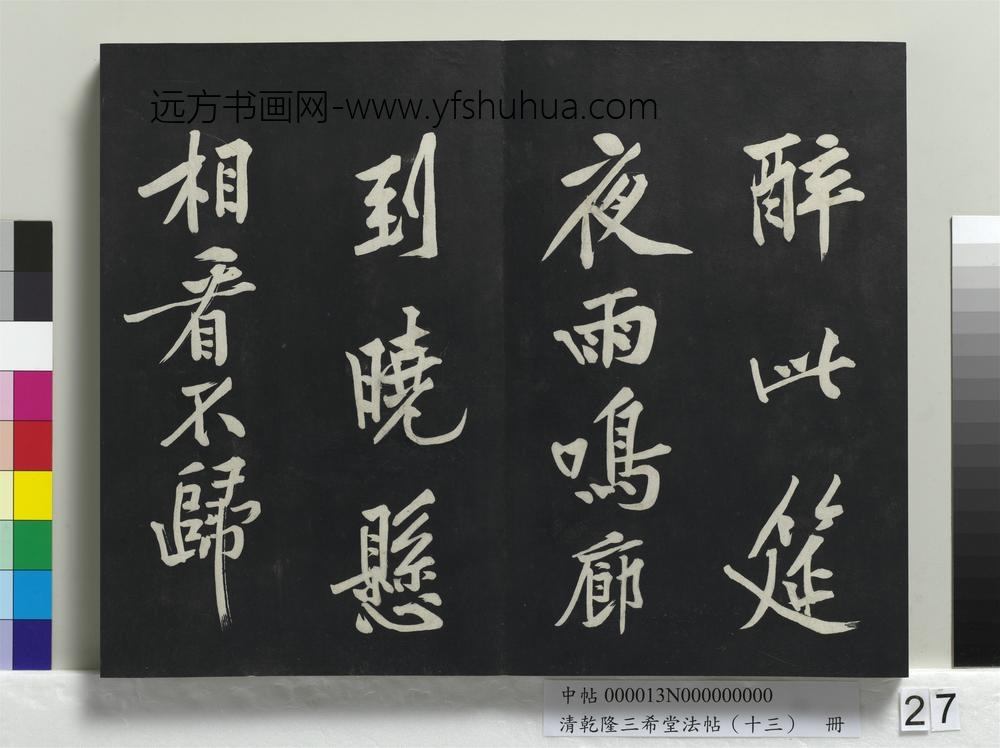 远方书画网-www.yfshuhua.com
醉此筵
夜雨鳴廊
到曉懸
相看不歸
中帖 000013N000000000
清乾隆三希堂法帖（十三） 冊
27